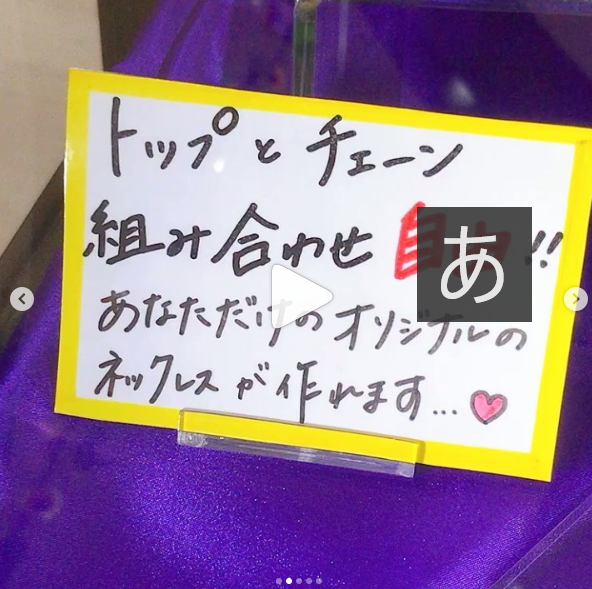 トップと チェーン
組み合わせ 自由!!
あなただけの オリジナルの
ネックレス が 作れます...♥
あ